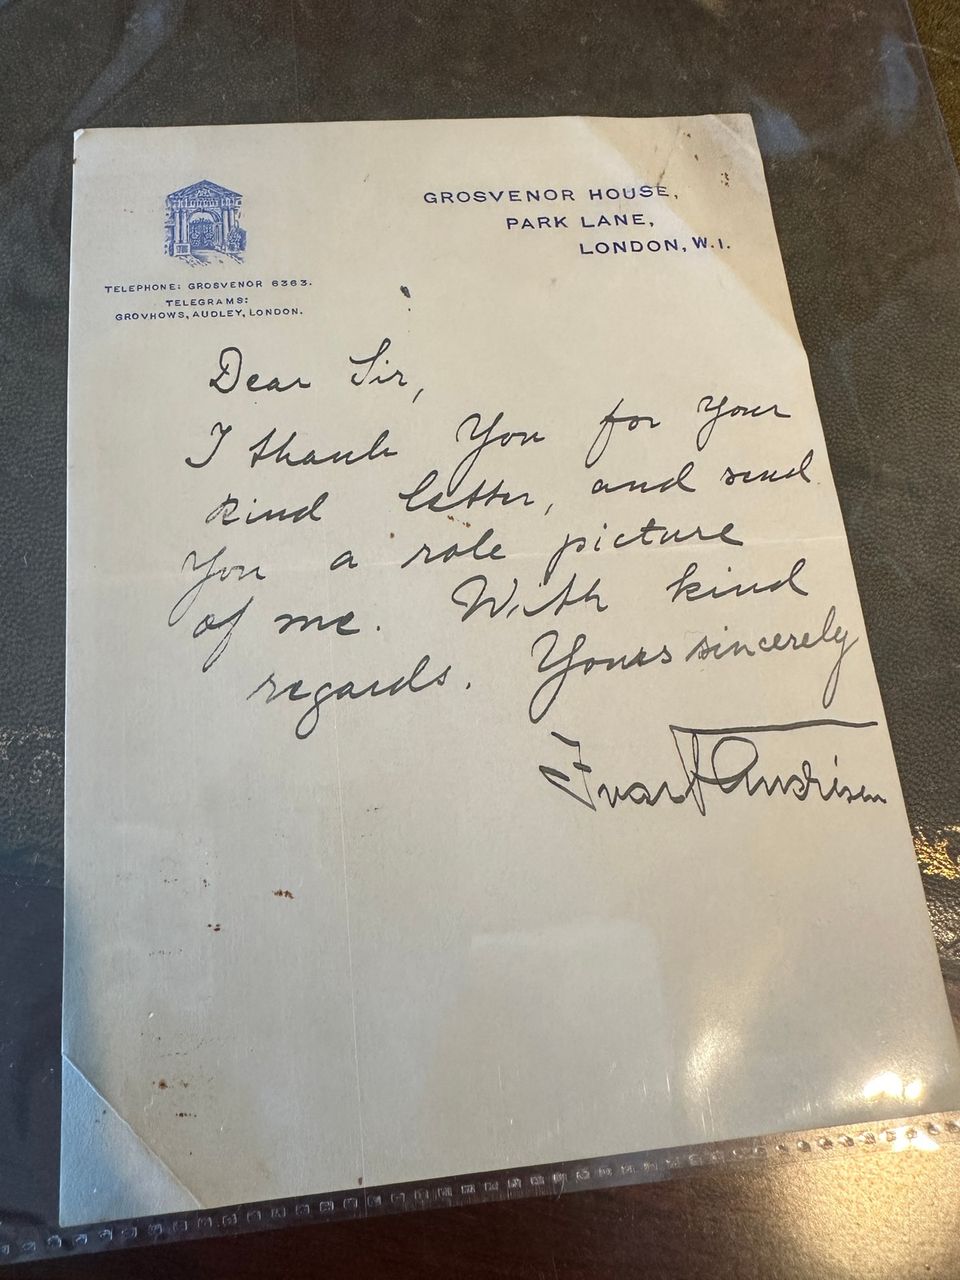 GROSVENOR HOUSE,
PARK LANE,
LONDON, W.1.
TELEPHONE: GROSVENOR 6363.
TELEGRAMS:
GROVHOWS, AUDLEY, LONDON.
Dear Sir,
I thank You for Your
kind letter, and send
You a role picture
of me. With kind
regards. Yours sincerely
Ivar F Andrisen